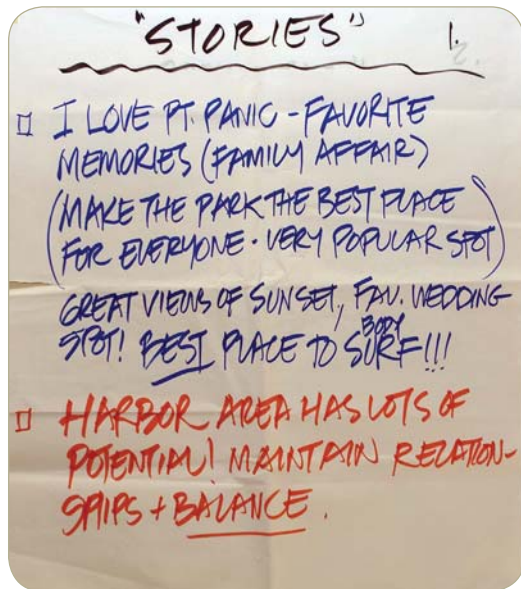 "STORIES" 1.
□ I LOVE PT. PANIC - FAVORITE
MEMORIES (FAMILY AFFAIR)
(MAKE THE PARK THE BEST PLACE
FOR EVERYONE · VERY POPULAR SPOT)
GREAT VIEWS OF SUNSET, FAV. WEDDING
SPOT! BEST PLACE TO BODY SURF!!!
□ HARBOR AREA HAS LOTS OF
POTENTIAL! MAINTAIN RELATION-
SHIPS + BALANCE.